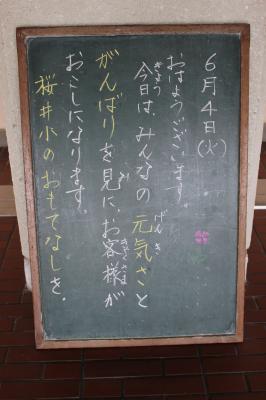 6月4日(火)
おはようございます。
今日は、みんなの元気さと
がんばりを見に、お客様が
おこしになります。
桜井小のおもてなしを。
きょう
げんき
み
きゃくさま